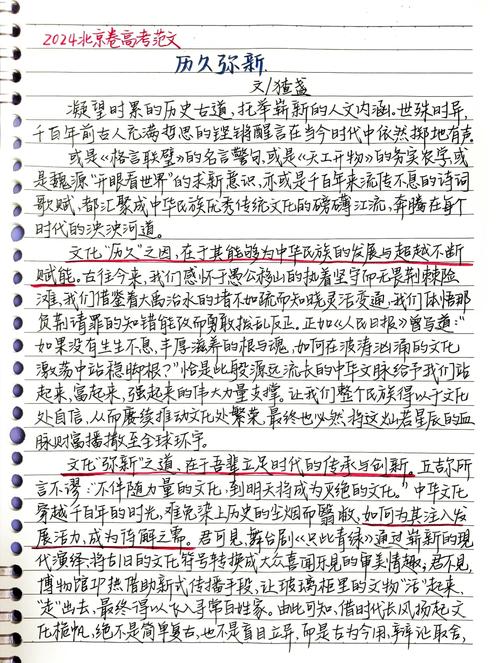 2024北京卷高考范文
历久弥新
文/猹盏
凝望时累的历史古道,托举崭新的人文内涵。世殊时异,
千百年前古人充满哲思的铿锵醒言在当今时代中依然掷地有声。
或是《格言联璧》的名言警句,或是《天工开物》的务实农学,或
是魏源“开眼看世界”的求新意识,亦或是千百年来流传不息的诗词
歌赋,都汇聚成中华民族优秀传统文化的磅礴江流,奔腾在每个
时代的泱泱河道。
文化“历久”之因,在于其能够为中华民族的发展与超越不断
赋能。古往今来,我们感怀于愚公移山的执着坚守而无畏荆棘险
滩,我们借鉴着大禹治水的堵不如疏而知晓灵活变通,我们体悟那
负荆请罪的知错能改而勇敢拨乱反正。正如《人民日报》曾写道:“
如果没有生生不息,丰厚滋养的根与魂,如何在波涛汹涌的文化
激荡中站稳脚跟?”恰是此般源远流长的中华文脉给予我们站
起来,富起来,强起来的伟大力量支撑。让我们整个民族得以于文化
处自信,从而赓续推动文化处繁荣,最终也必然将这灿若星辰的血
脉财富播撒至全球环宇。
文化“弥新”之道,在于吾辈立足时代的传承与创新。丘吉尔所
言不谬:“不伴随力量的文化,到明天将成为灭绝的文化。”中华文化
穿越千百年的时光,难免染上历史的尘烟而翳敝,如何为其注入发
展活力,成为待解之需。君可见,舞台剧《只此青绿》通过崭新的现
代演绎,将古旧的文化符号转换成大众喜闻乐见的审美情趣;君不见,
博物馆IP热借助新式传播手段,让玻璃柜里的文物“活”起来,
“走”出去,最终得以飞入寻常百姓家。由此可知,借时代长风扬起文
化桅帆,绝不是简单复古,也不是盲目立异,而是古为今用,辩证取舍,